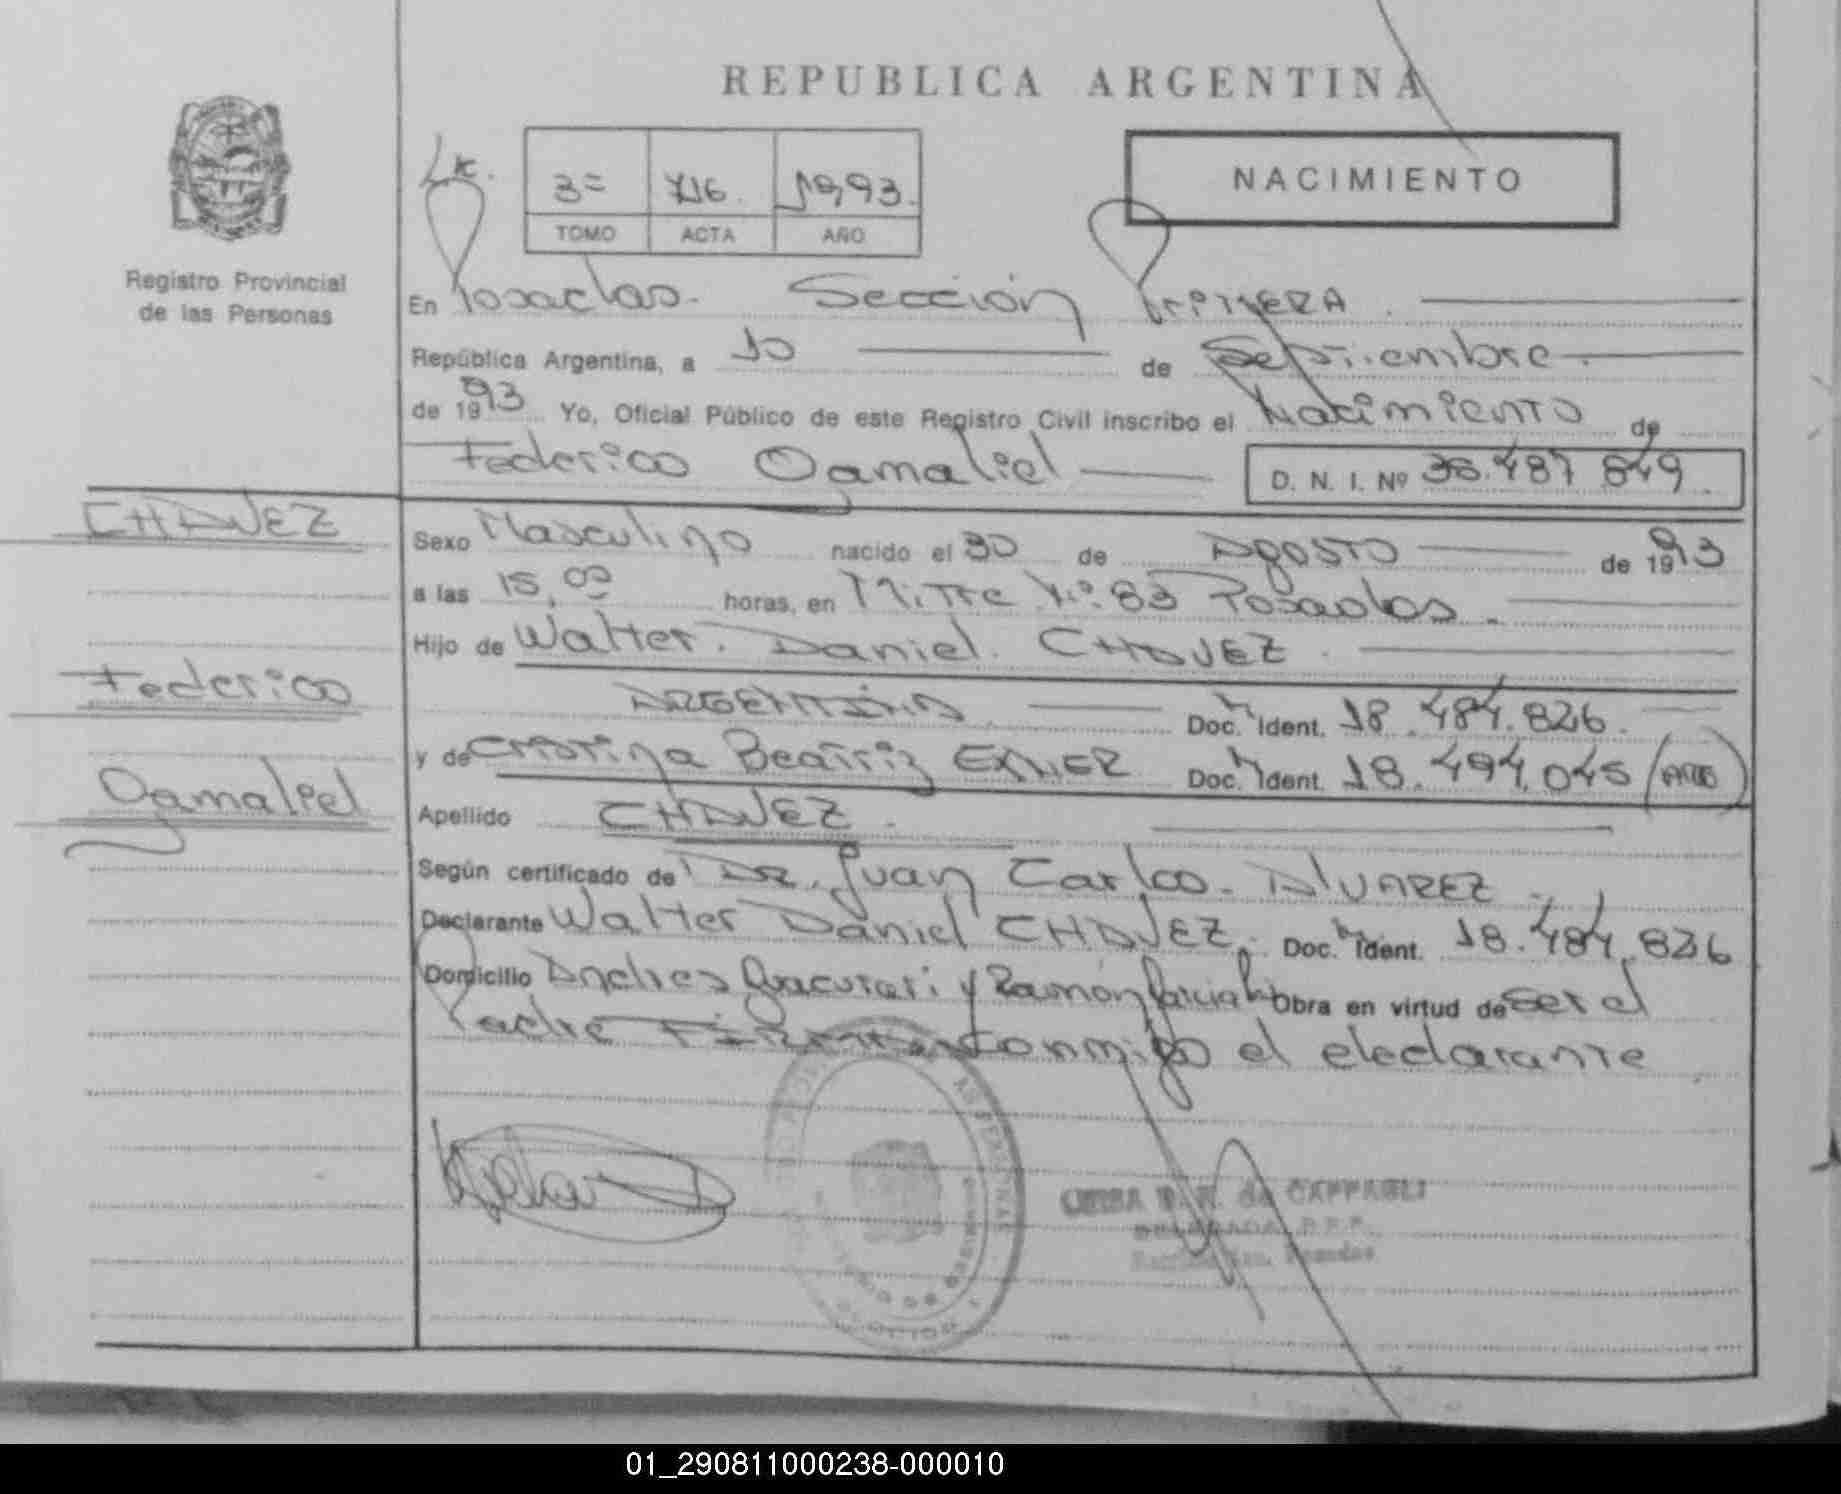 REPUBLICA ARGENTINA
NACIMIENTO
3= 716. 1993.
TOMO ACTA AÑO
Registro Provincial
de las Personas
En Posadas. Sección PriMERA.
República Argentina, a 10 de Septiembre.
de 1993 Yo, Oficial Público de este Registro Civil inscribo el Nacimiento de
Federico Gamaliel D. N. I. Nº 38.487 849.
CHAVEZ
Sexo Masculino nacido el 30 de AgosTo de 1993
a las 15,00 horas, en MiTre Nº. 83 Posadas.
Hijo de Walter. Daniel. CHAVEZ.
Federico
ARGENTINA Doc. N Ident. 18.484.826.
y de Cristina Beatriz Doc. N Ident. 18.494.045
Gamaliel
Apellido CHAVEZ.
Según certificado de DR. Juan Carlos. AlVAREZ.
Declarante Walter Daniel CHAVEZ. Doc. N Ident. 18.484.826
Domicilio Andres Guacurari y Ramón Obra en virtud de ser el
Padre Firma conmigo el declarante
de CAPPAGLI
DELEGADA
Posadas
01_290811000238-000010